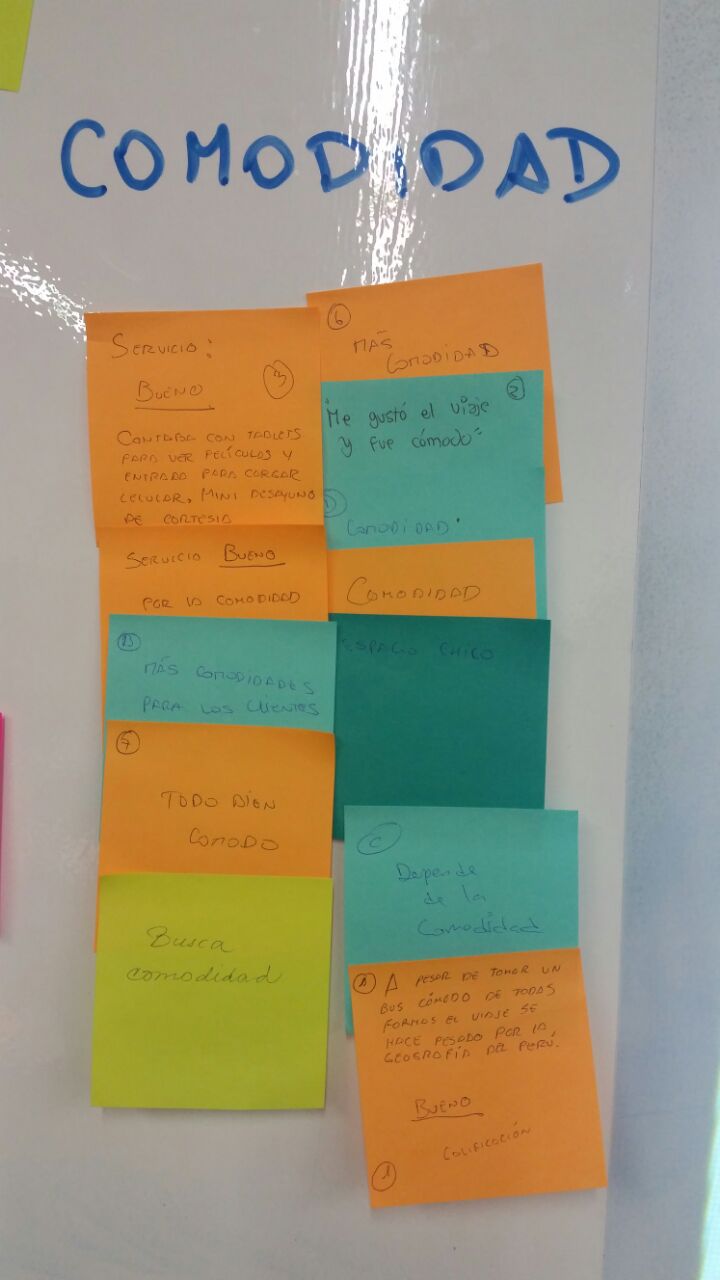 COMODIDAD
SERVICIO:
3
BUENO
CONTABA CON TABLETS
PARA VER PELÍCULAS Y
ENTRADA PARA CARGAR
CELULAR, MINI DESAYUNO
DE CORTESIA
SERVICIO BUENO
POR LA COMODIDAD
MÁS COMODIDADES
PARA LOS CLIENTES
7
TODO BIEN
COMODO
Busca
comodidad
6
MÁS
COMODIDAD
2
"Me gustó el viaje
y fue cómodo"
COMODIDAD
COMODIDAD
ESPACIO CHICO
C
Depende
de la
Comodidad
A PESAR DE TOMAR UN
BUS CÓMODO DE TODAS
FORMAS EL VIAJE SE
HACE PESADO POR LA
GEOGRAFÍA DEL PERÚ.
BUENO
CALIFICACIÓN
1